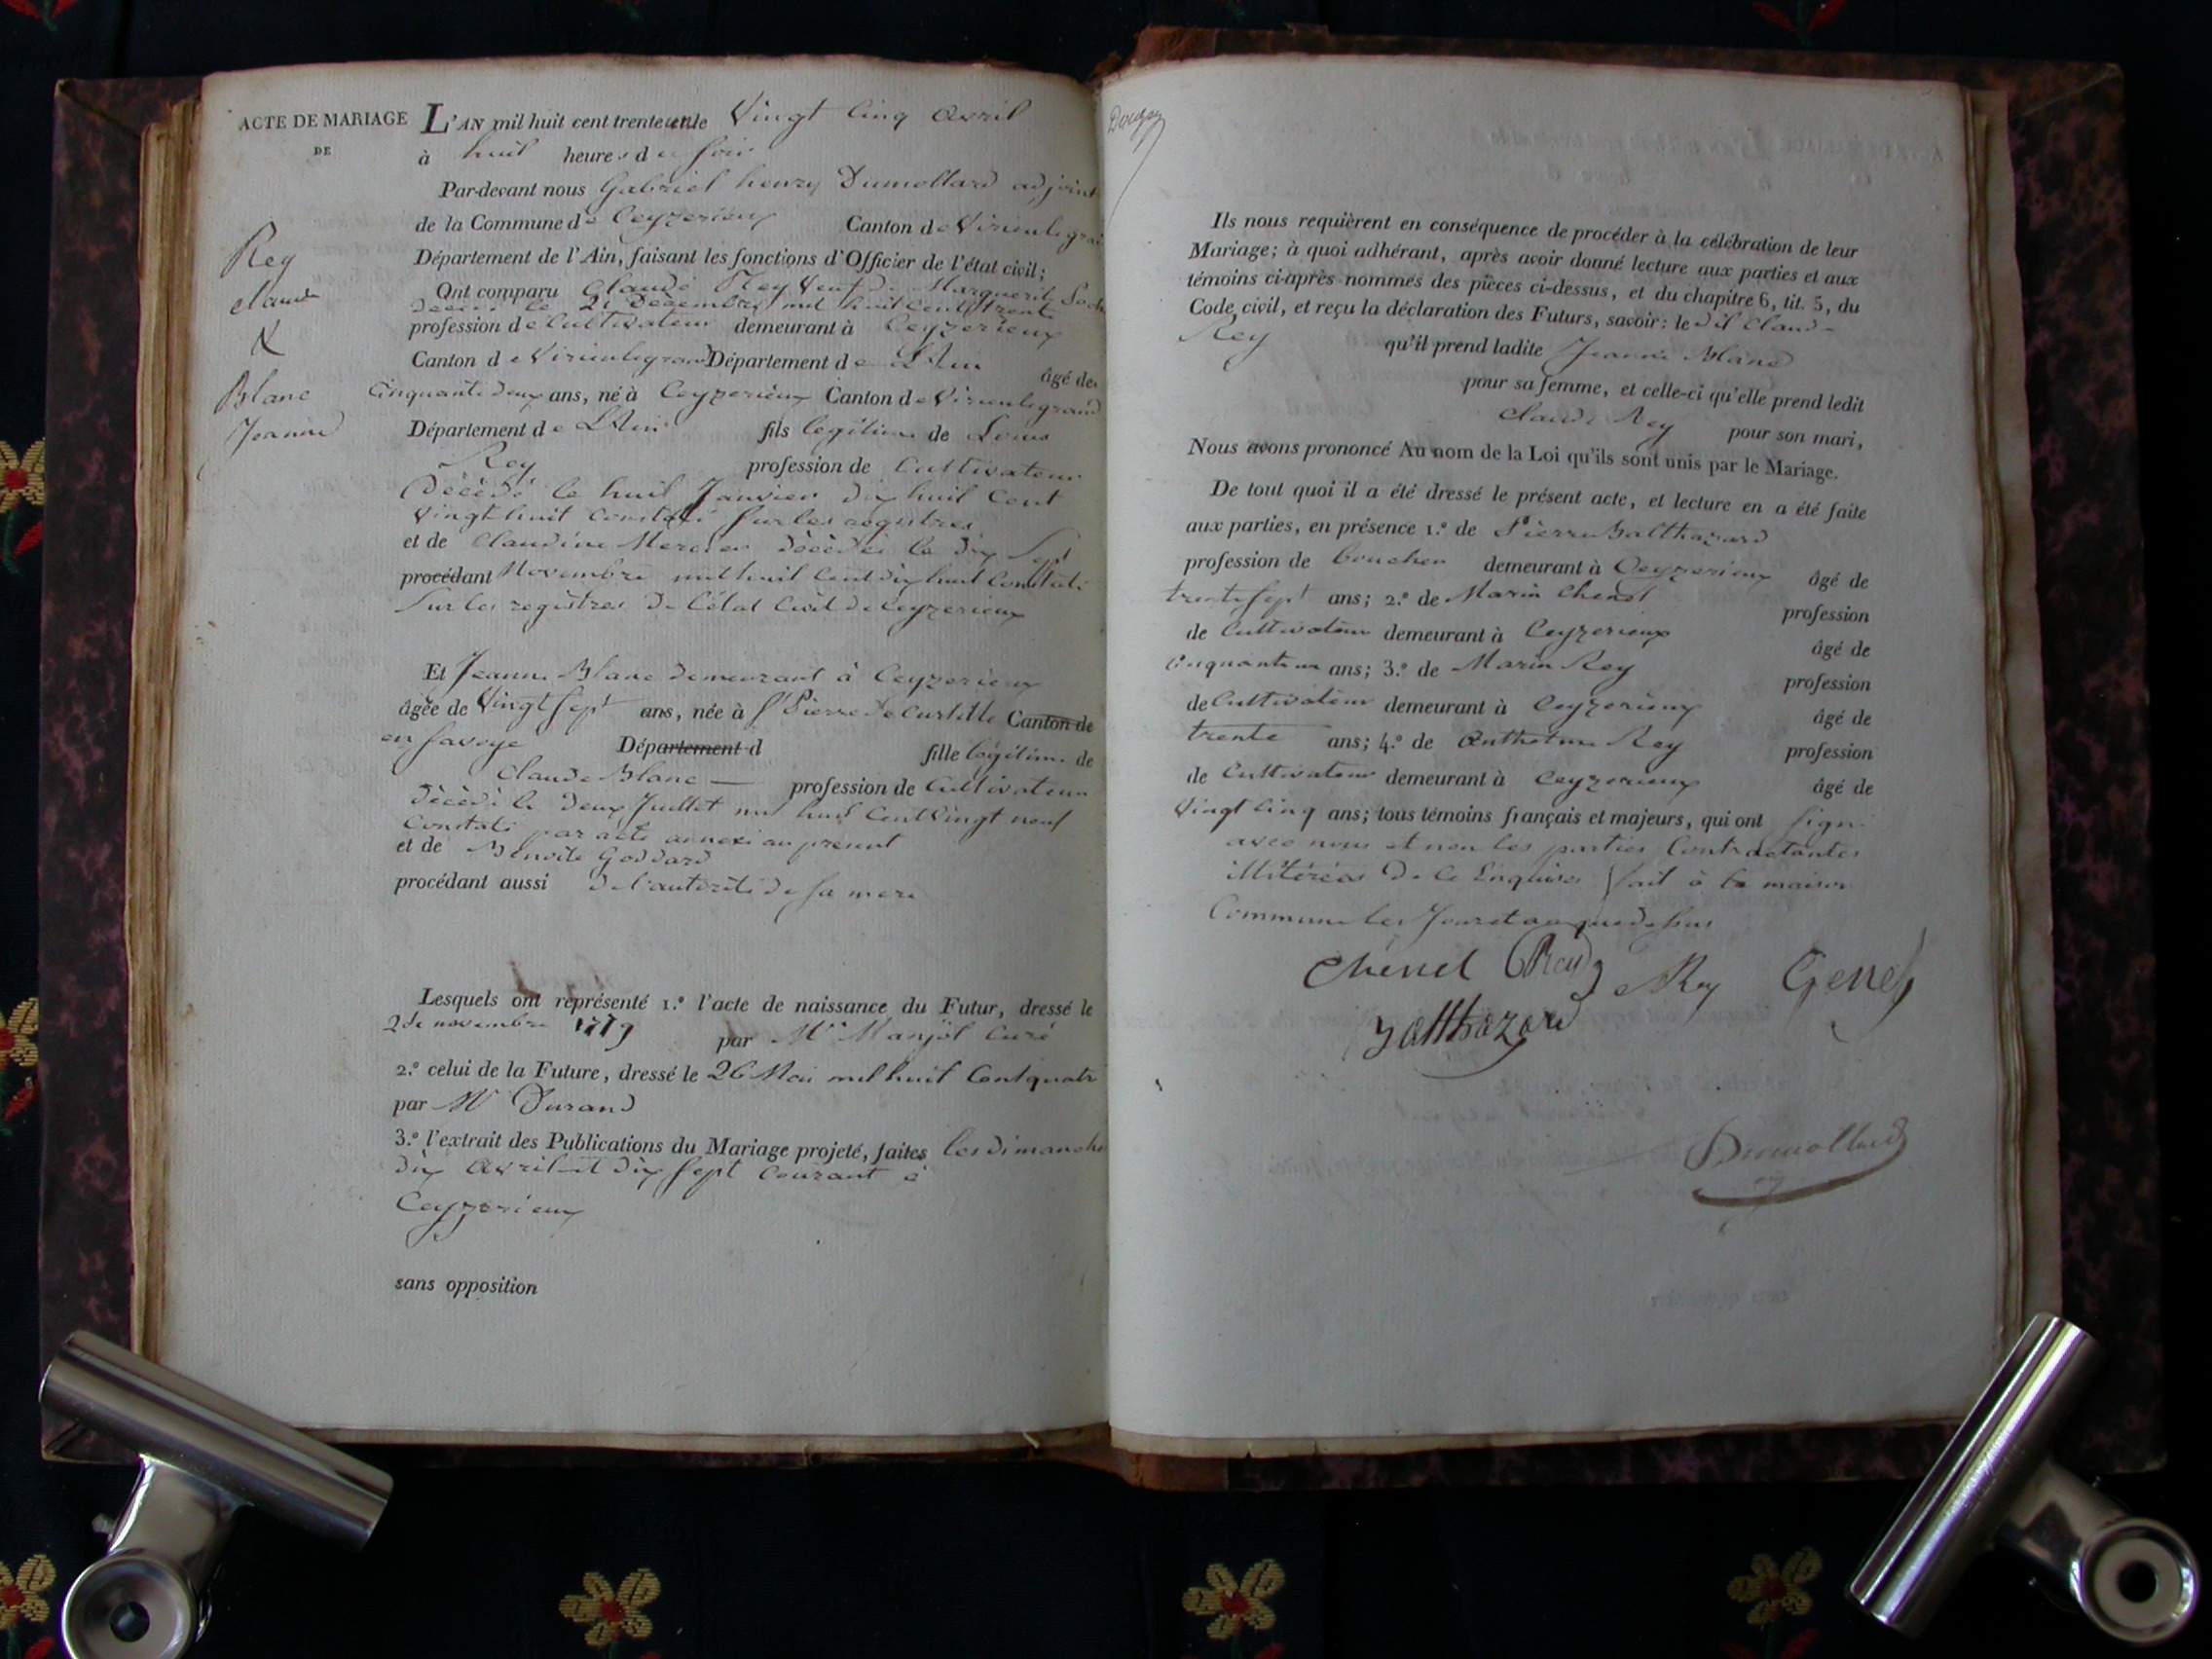 ACTE DE MARIAGE
DE
Rey
claude
&
Blanc
Jeanne
L'AN mil huit cent trente un le Vingt Cinq avril
à huit heures du soir
Par-devant nous Gabriel henry Dumollard adjoint
de la Commune de Ceyzerieux Canton de Virieulegrand
Département de l'Ain, faisant les fonctions d'Officier de l'état civil;
Ont comparu Claude Rey Veuf de Marguerite
décédée le 21 Décembre mil huit Cent trente
profession de Cultivateur demeurant à Ceyzerieux
Canton de Virieulegrand Département de L'Ain âgé de
Cinquante deux ans, né à Ceyzerieux Canton de Virieulegrand
Département de L'Ain fils légitime de Louis
Rey profession de Cultivateur
Décédé le huit Janvier dix huit Cent
Vingt huit Constaté sur les registres
et de Claudine Mercier décédée le dix Sept
procédant Novembre mil huit Cent dix huit Constaté
Sur les registres de l'état Civil de Ceyzerieux
Et Jeanne Blanc demeurant à Ceyzerieux
âgée de Vingt sept ans, née à St Pierre de Curtille Canton de
en Savoye Département d fille légitime de
Claude Blanc profession de Cultivateur
décédé le deux Juillet mil huit Cent Vingt neuf
Constaté par acte annexé au présent
et de Benoite Goddard
procédant aussi de l'autorité de sa mere
Lesquels ont représenté 1.º l'acte de naissance du Futur, dressé le
2 de novembre 1779 par Mr Manjôt Curé
2.º celui de la Future, dressé le 26 Mai mil huit Cent quatre
par Mr Durand
3.º l'extrait des Publications du Mariage projeté, faites les dimanche
dix Avril et dix sept Courant à
Ceyzerieux
sans opposition
Ils nous requièrent en conséquence de procéder à la célébration de leur
Mariage; à quoi adhérant, après avoir donné lecture aux parties et aux
témoins ci-après nommés des pièces ci-dessus, et du chapitre 6, tit. 5, du
Code civil, et reçu la déclaration des Futurs, savoir: le dit Claude
Rey qu'il prend ladite Jeanne Blanc
pour sa femme, et celle-ci qu'elle prend ledit
Claude Rey pour son mari,
Nous avons prononcé Au nom de la Loi qu'ils sont unis par le Mariage.
De tout quoi il a été dressé le présent acte, et lecture en a été faite
aux parties, en présence 1.º de Pierre Balthazard
profession de boucher demeurant à Ceyzerieux âgé de
trente sept ans; 2.º de Marin Chenel profession
de Cultivateur demeurant à Ceyzerieux âgé de
Cinquante un ans; 3.º de Marin Rey profession
de Cultivateur demeurant à Ceyzerieux âgé de
trente ans; 4.º de Anthelme Rey profession
de Cultivateur demeurant à Ceyzerieux âgé de
Vingt Cinq ans; tous témoins français et majeurs, qui ont signé
avec nous et non les parties Contractantes
illitérées de ce Enquises fait à la maison
Commune les Jour et an que dessus
Chenel Rey Rey
Balthazard
Dumollard